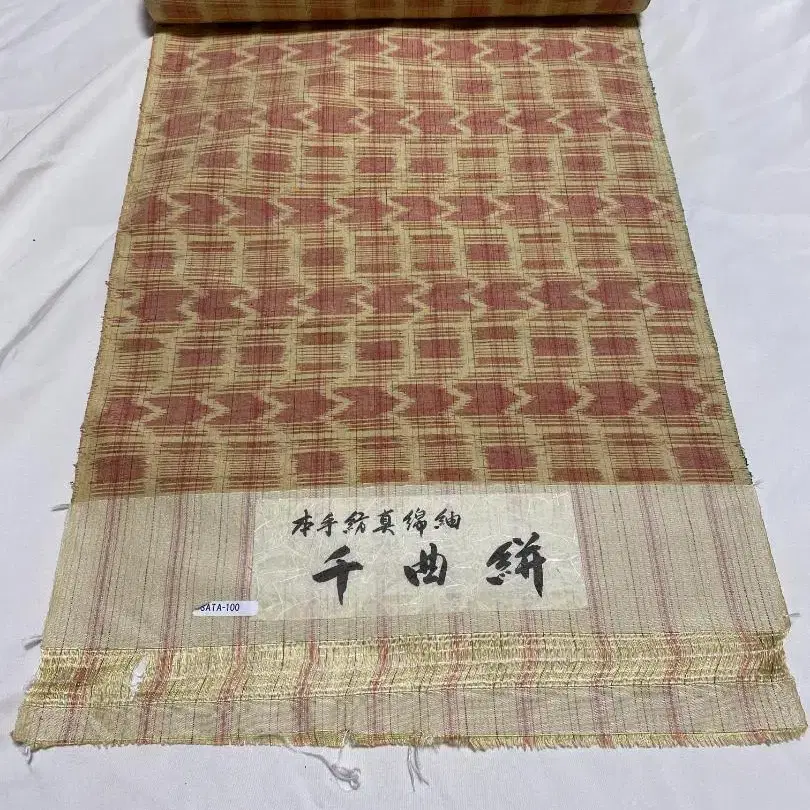 本手紡真綿紬
千曲絣
SATA-100